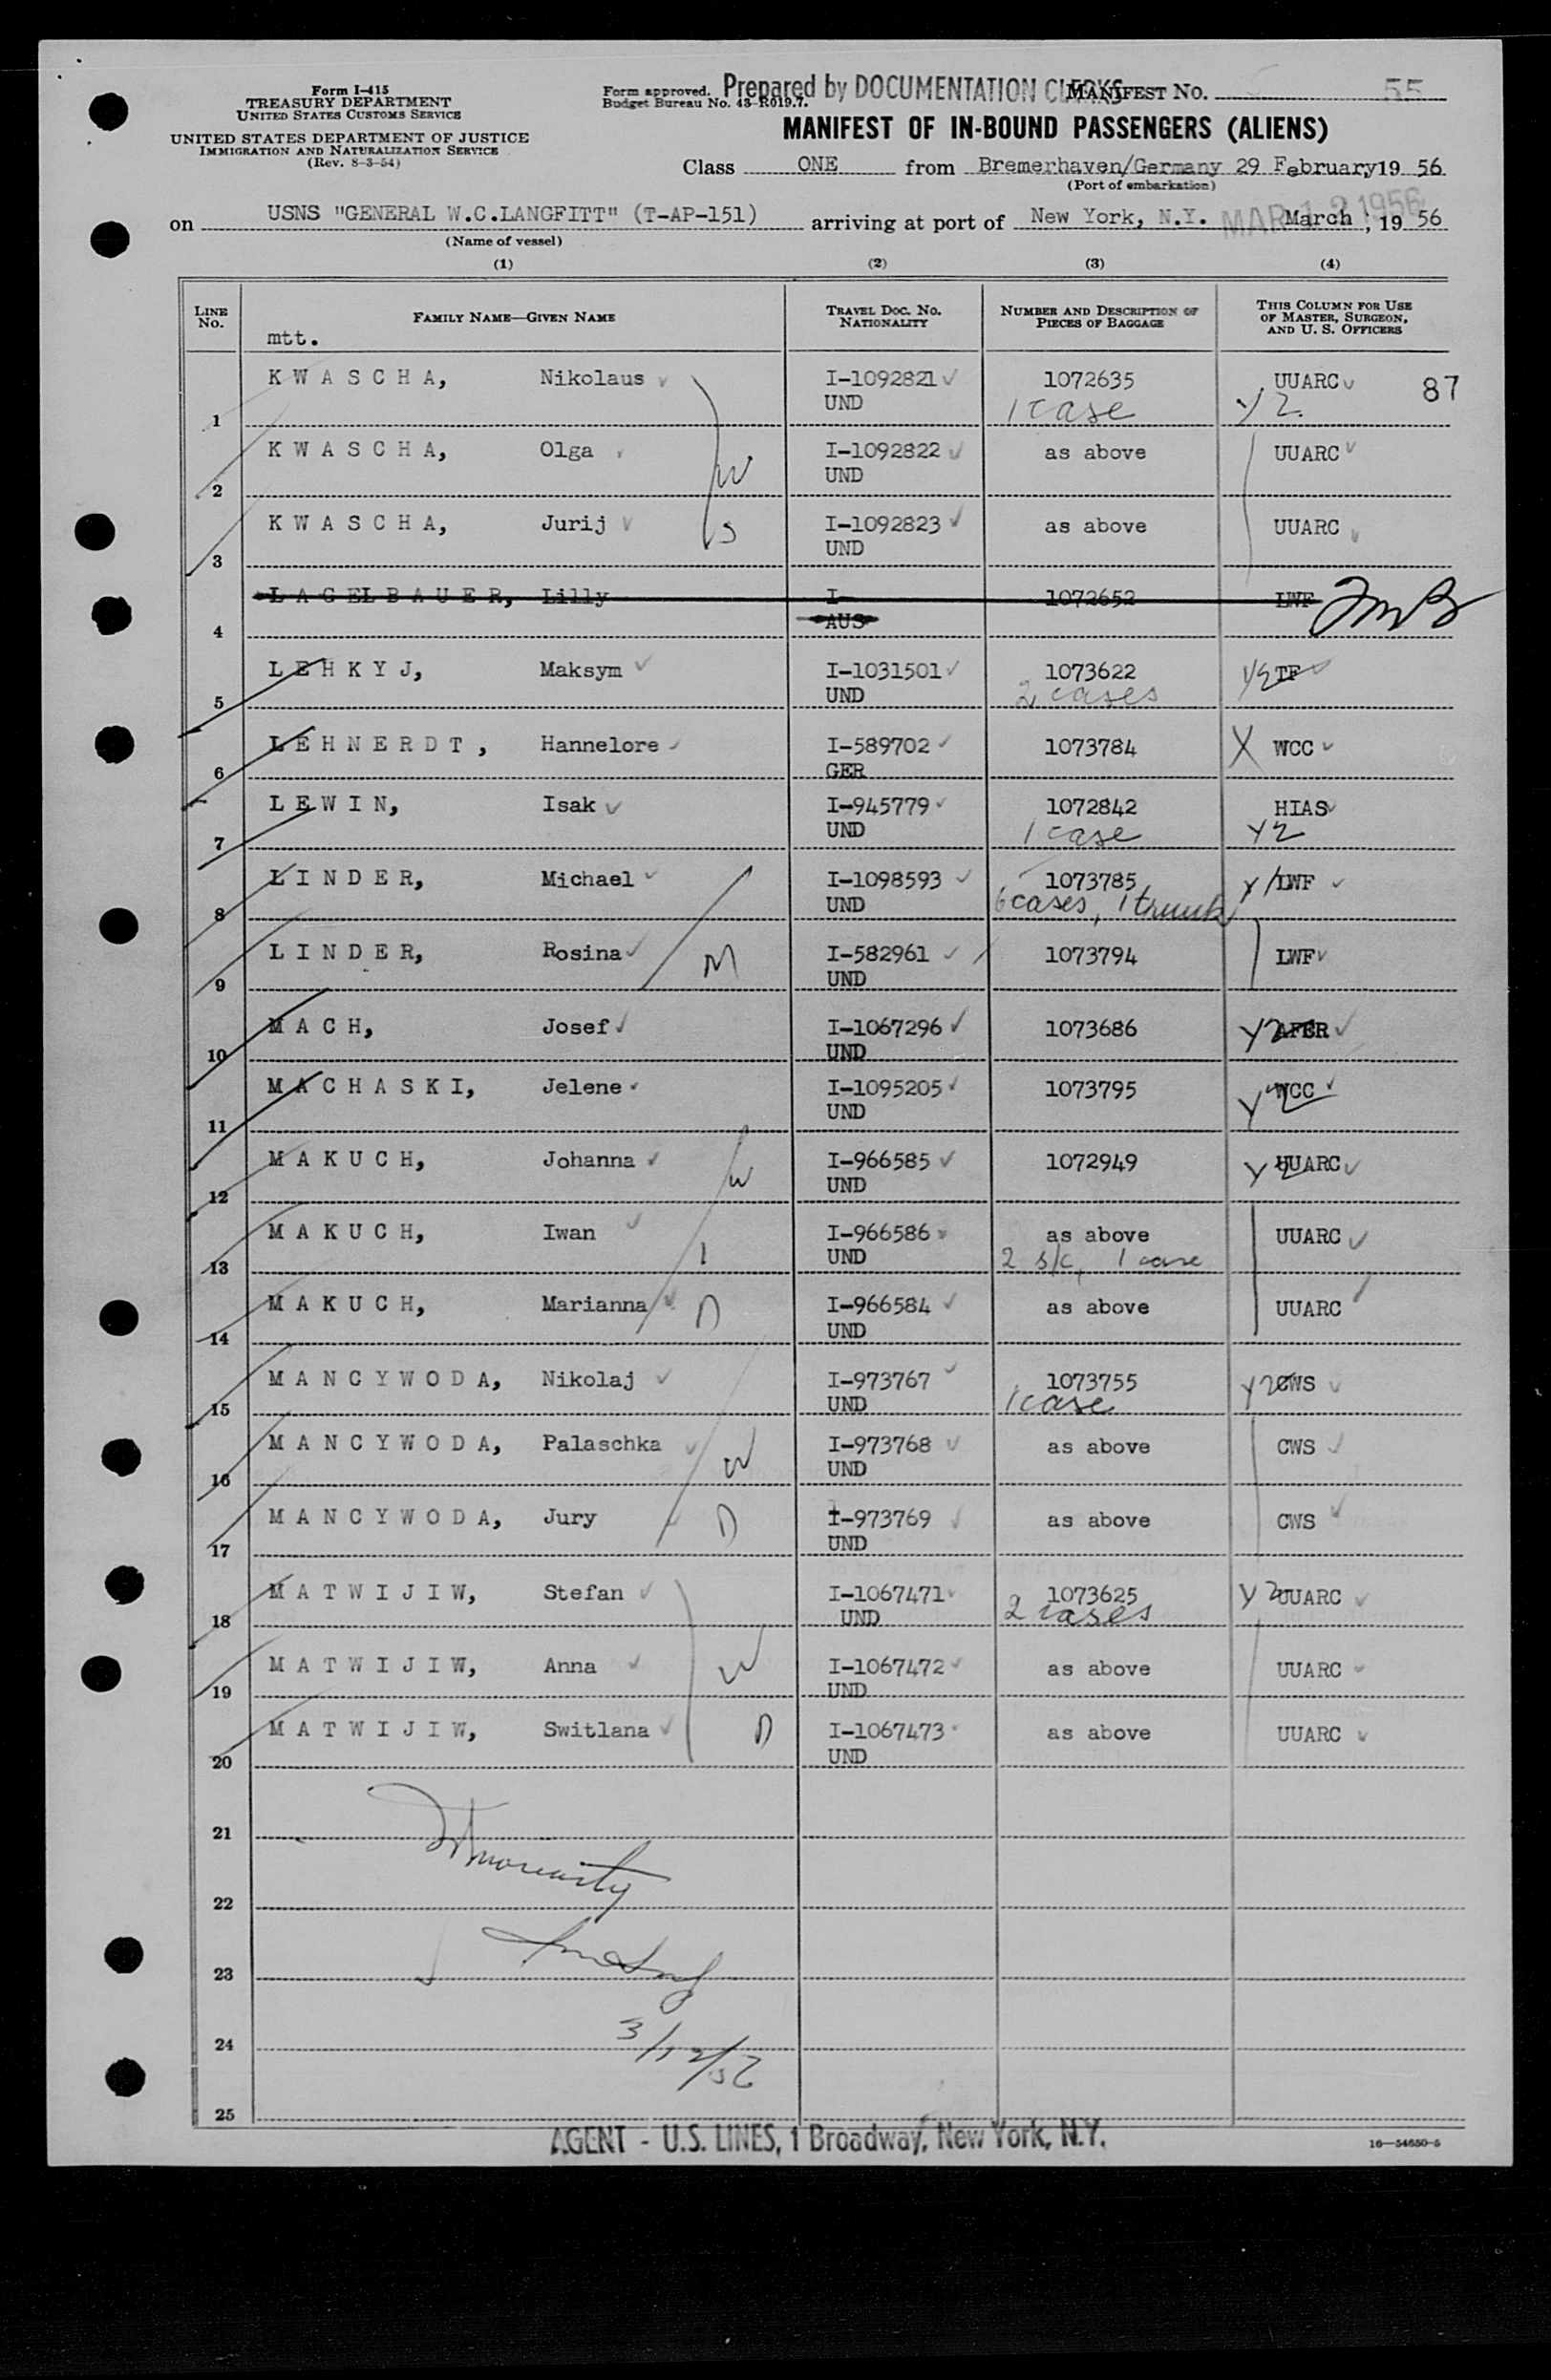 Form I-415
TREASURY DEPARTMENT
UNITED STATES CUSTOMS SERVICE
UNITED STATES DEPARTMENT OF JUSTICE
IMMIGRATION AND NATURALIZATION SERVICE
(Rev. 8-3-54)
Form approved.
Budget Bureau No. 43-R019.7.
Prepared by DOCUMENTATION CLERKS
MANIFEST NO. 55
MANIFEST OF IN-BOUND PASSENGERS (ALIENS)
Class ONE from Bremerhaven/Germany 29 February 19 56
(Port of embarkation)
on USNS "GENERAL W.C.LANGFITT" (T-AP-151) arriving at port of New York, N.Y. March , 19 56
MAR 12 1956
(Name of vessel)
(1) (2) (3) (4)
LINE No. FAMILY NAME—GIVEN NAME TRAVEL DOC. NO. NATIONALITY NUMBER AND DESCRIPTION OF PIECES OF BAGGAGE THIS COLUMN FOR USE OF MASTER, SURGEON, AND U. S. OFFICERS
mtt.
87
1 KWASCHA, Nikolaus I-1092821 UND 1072635 1 case UUARC Y2.
2 KWASCHA, Olga W I-1092822 UND as above UUARC
3 KWASCHA, Jurij S I-1092823 UND as above UUARC
4 LAGELBAUER, Lilly I- AUS 1072652 LWF
5 LEHKYJ, Maksym I-1031501 UND 1073622 2 cases Y2 TF
6 LEHNERDT, Hannelore I-589702 GER 1073784 X WCC
7 LEWIN, Isak I-945779 UND 1072842 1 case HIAS Y2
8 LINDER, Michael I-1098593 UND 1073785 6 cases, 1 trunk Y1 LWF
9 LINDER, Rosina M I-582961 UND 1073794 LWF
10 MACH, Josef I-1067296 UND 1073686 Y2 AFER
11 MACHASKI, Jelene I-1095205 UND 1073795 Y2 WCC
12 MAKUCH, Johanna W I-966585 UND 1072949 Y2 UUARC
13 MAKUCH, Iwan 1 I-966586 UND as above 2 s/c, 1 case UUARC
14 MAKUCH, Marianna D I-966584 UND as above UUARC
15 MANCYWODA, Nikolaj I-973767 UND 1073755 1 case Y2 CWS
16 MANCYWODA, Palaschka W I-973768 UND as above CWS
17 MANCYWODA, Jury D I-973769 UND as above CWS
18 MATWIJIW, Stefan I-1067471 UND 1073625 2 cases Y2 UUARC
19 MATWIJIW, Anna W I-1067472 UND as above UUARC
20 MATWIJIW, Switlana D I-1067473 UND as above UUARC
21
22
23
24
3/12/56
25
AGENT - U.S. LINES, 1 Broadway, New York, N.Y.
16—54650-5